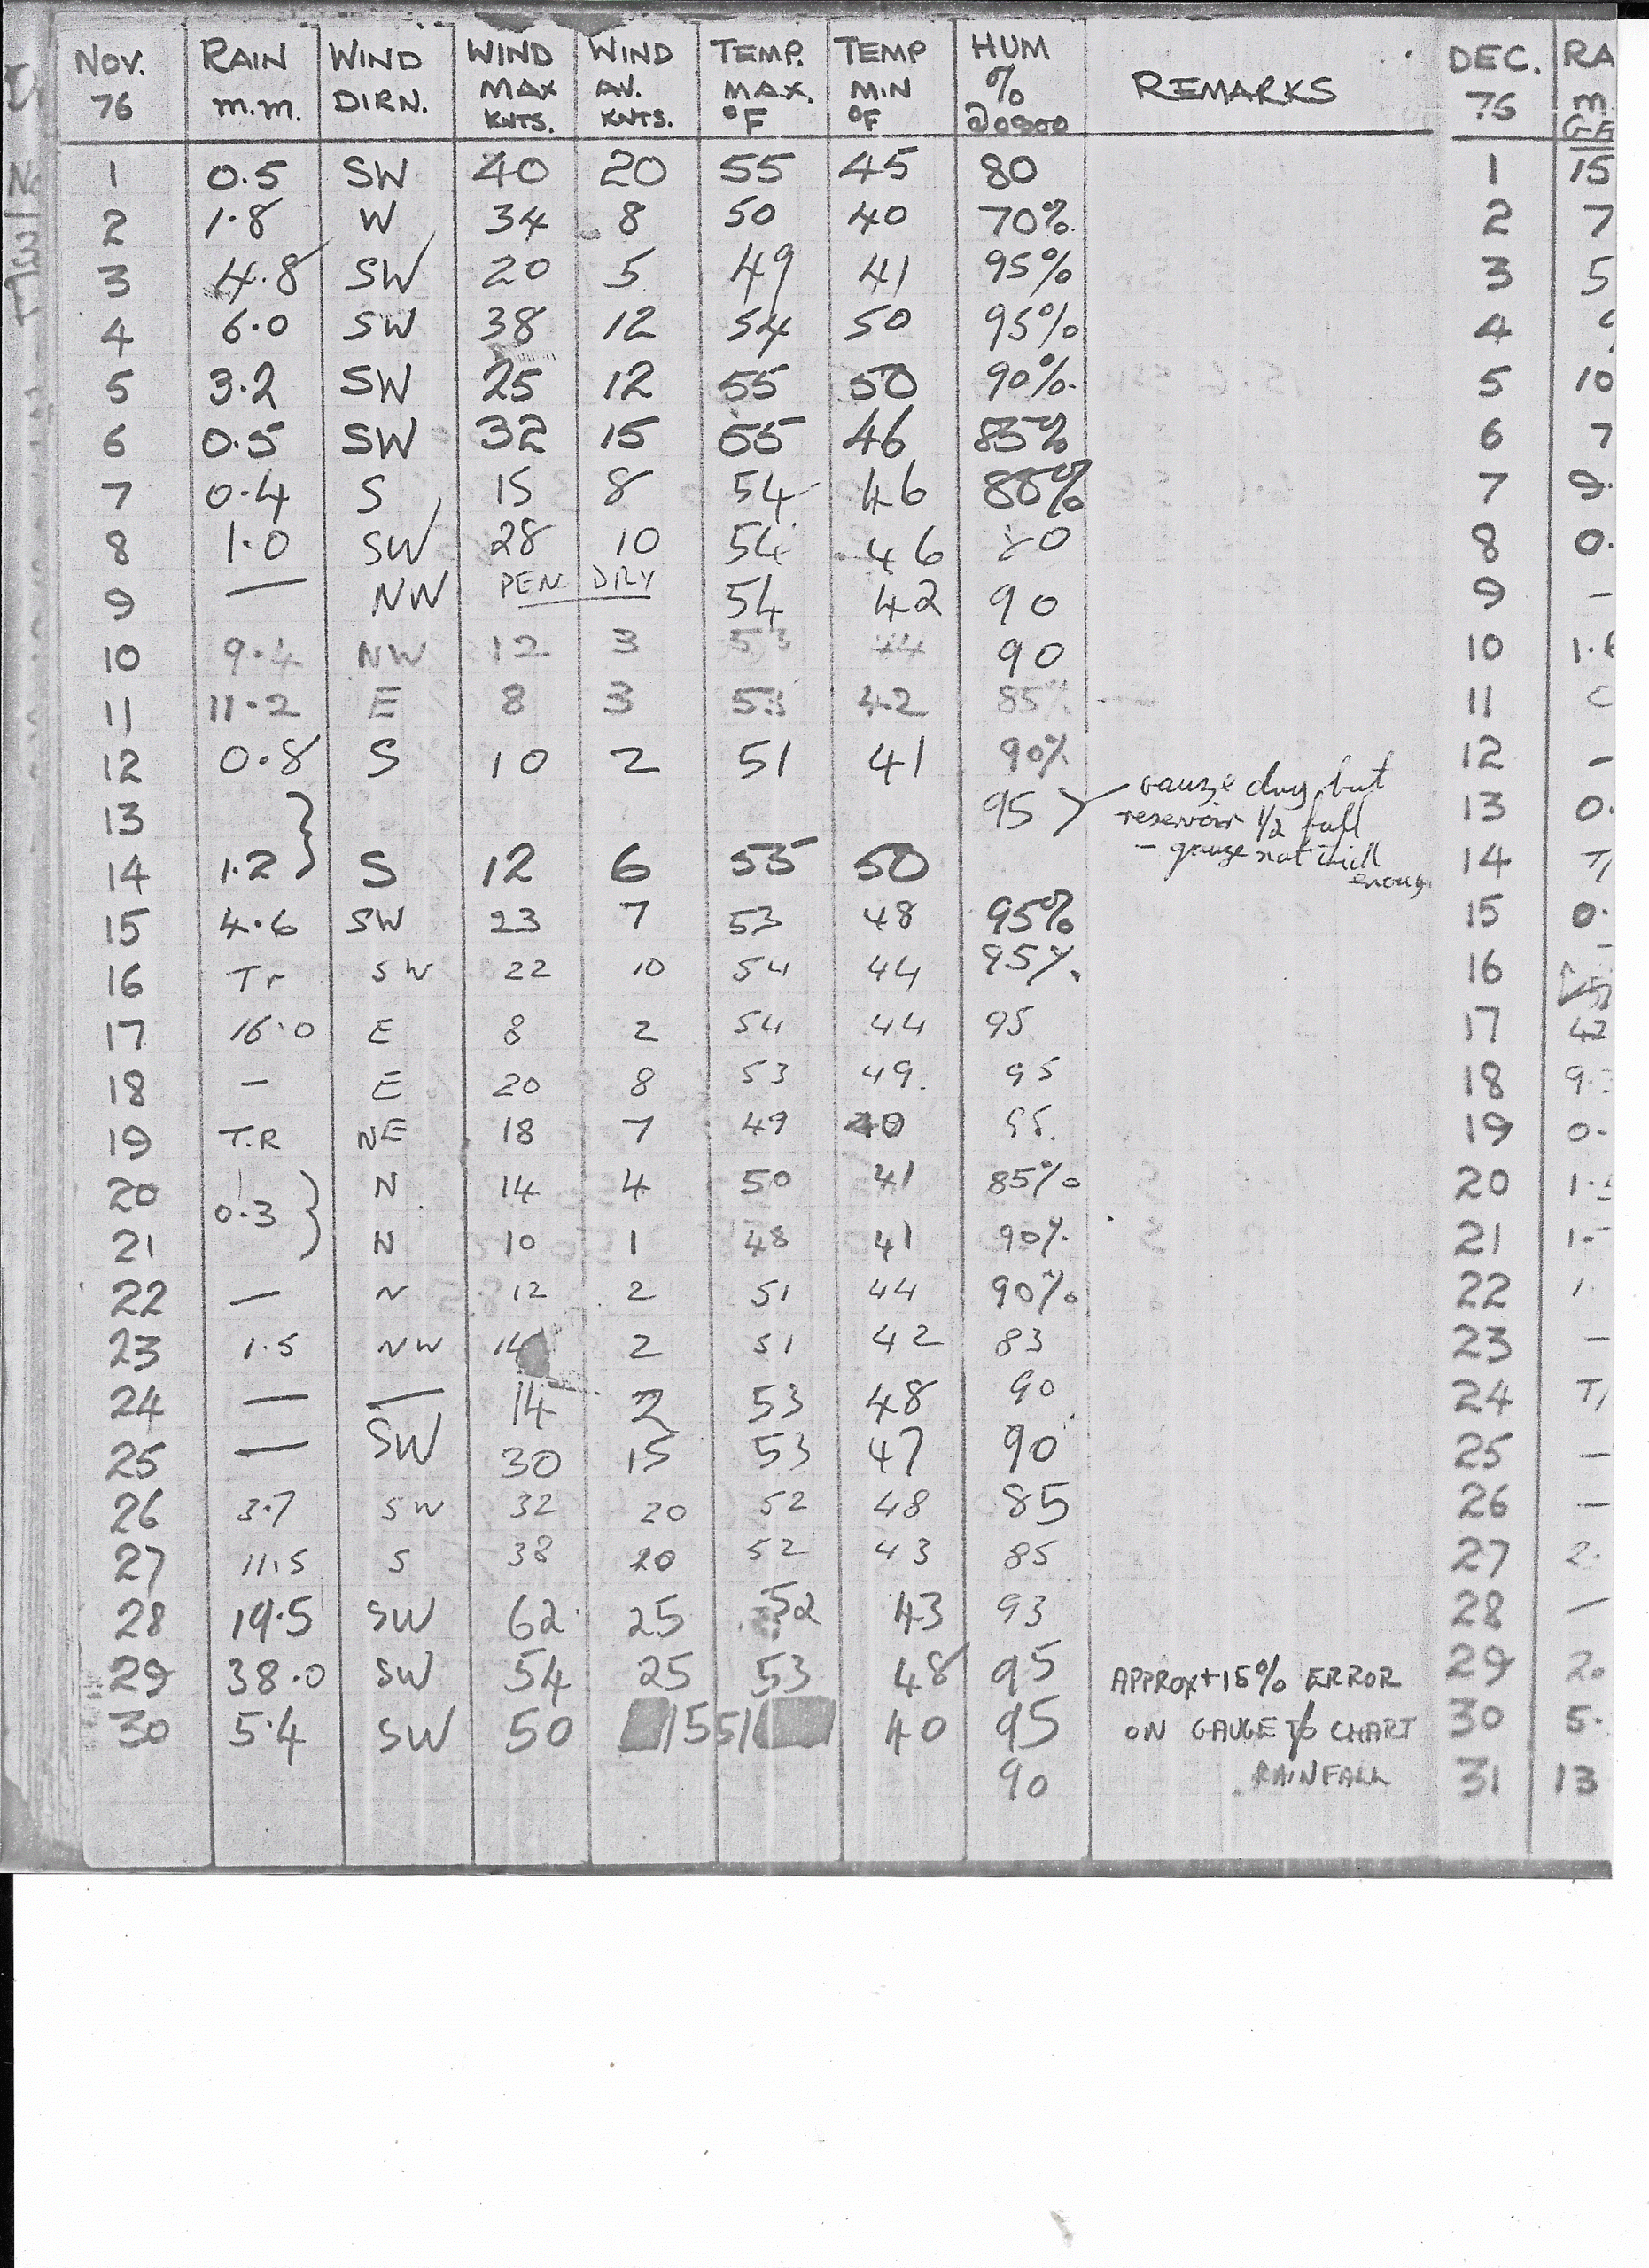 NOV. 76 RAIN m.m. WIND DIRN. WIND MAX KNTS. WIND AV. KNTS. TEMP. MAX. °F TEMP MIN °F HUM % @0900 REMARKS DEC. 76 RA
1 0.5 SW 40 20 55 45 80 1 15
2 1.8 W 34 8 50 40 70% 2 7
3 4.8 SW 20 5 49 41 95% 3 5
4 6.0 SW 38 12 54 50 95% 4
5 3.2 SW 25 12 55 50 90% 5 10
6 0.5 SW 32 15 55 46 85% 6 7
7 0.4 S 15 8 54 46 7 9.
8 1.0 SW 28 10 54 46 80 8 0.
9 — NW PEN DRY 54 42 90 9 –
10 9.4 NW 12 3 53 44 90 10 1.
11 11.2 E 8 3 53 42 85% 11
12 0.8 S 10 2 51 41 90% 12 –
13 } 95 gauze dry but reservoir 1/2 full 13 0.
14 1.2 S 12 6 55 50 – gauze not thick enough 14 T
15 4.6 SW 23 7 53 48 95% 15 0.
16 Tr SW 22 10 54 44 95% 16
17 16.0 E 8 2 54 44 95 17 42
18 – E 20 8 53 49. 95 18 9.
19 T.R NE 18 7 49 40 19 0.
20 0.3 } N 14 4 50 41 85% 20 1.
21 N 10 1 48 41 90% 21 1.
22 — N 12 2 51 44 90% 22 1
23 1.5 NW 14 2 51 42 83 23 –
24 — — 14 2 53 48 90 24 T
25 — SW 30 15 53 47 90 25 –
26 3.7 SW 32 20 52 48 85 26 —
27 11.5 S 38 20 52 43 85 27 2.
28 19.5 SW 62 25 52 43 93 28 —
29 38.0 SW 54 25 53 48 95 APPROX +15% ERROR 29 2.
30 5.4 SW 50 15 51 40 95 ON GAUGE CHART 30 5.
90 RAINFALL 31 13